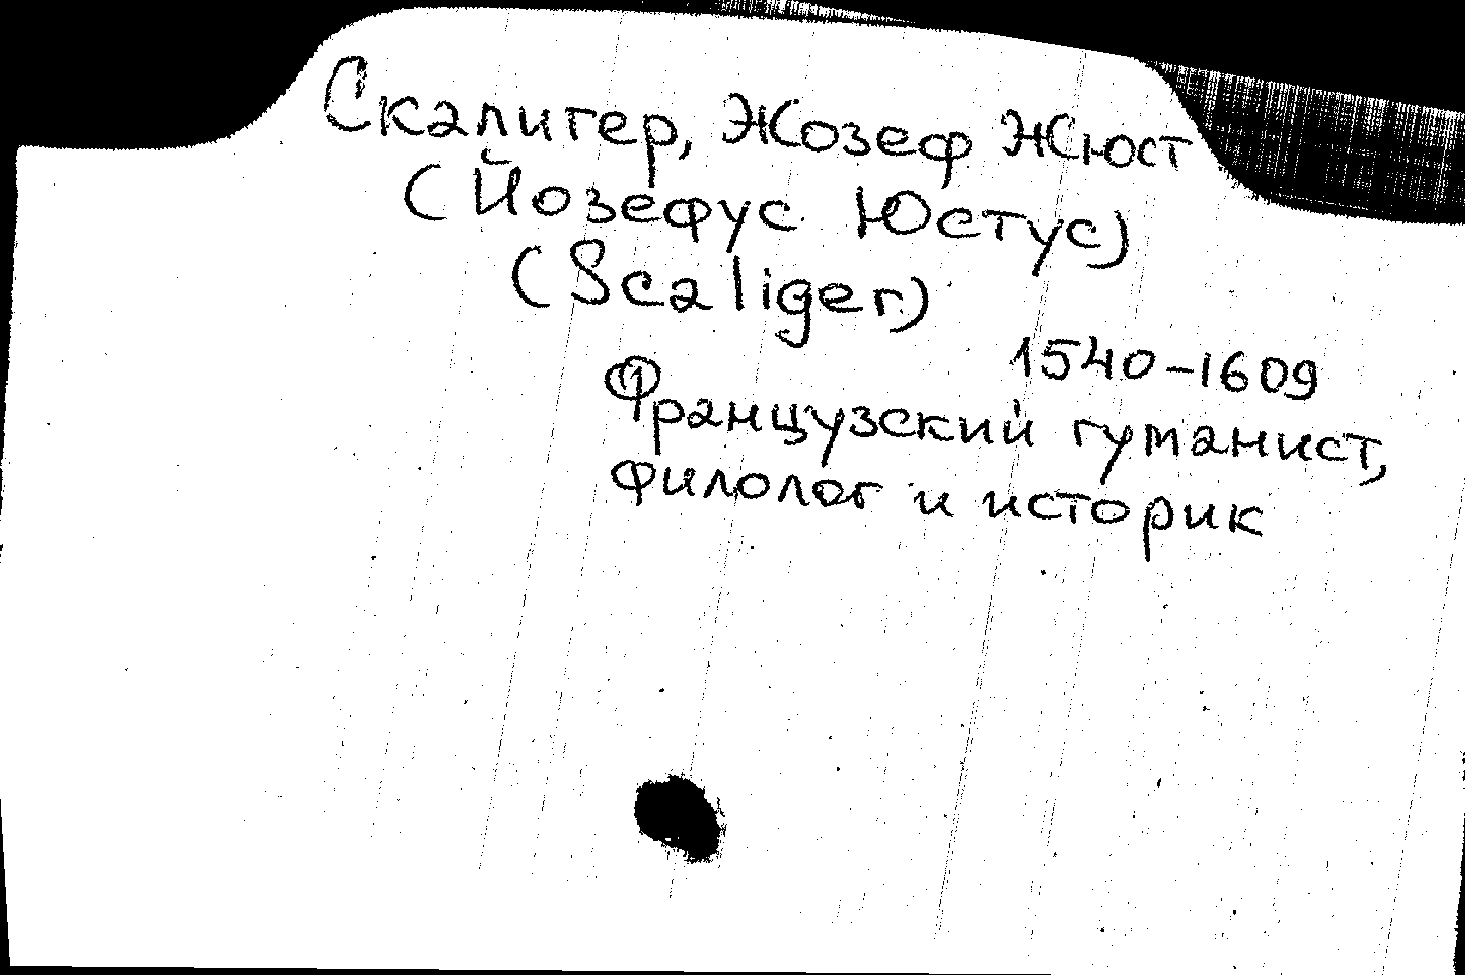 Скалигер, Жозеф Жюст
(Йозефус Юстус)
(Scaliger)
1540-1609
Французский гуманист,
филолог и историк